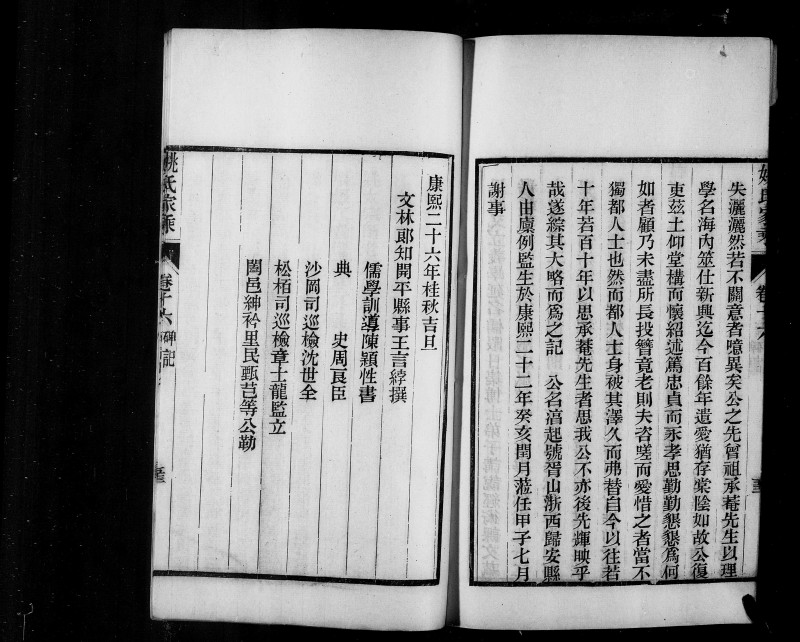 失灑灑然若不關意者噫異矣公之先曾祖承菴先生以理
學名海內筮仕新興迄今百餘年遺愛猶存棠陰如故公復
東茲土仰堂構而懷紹述篤忠貞而永孝思勤勤懇懇爲何
如者顧乃未盡所長投簪竟老則夫咨嗟而愛惜之者當不
獨都人士也然而都人士身被其澤久而弗替自今以往若
十年若百十年以思承菴先生者思我公不亦後先輝映乎
哉遂綜其大略而爲之記 公名湻起號胥山浙西歸安縣
人由廩例監生於康熙二十二年癸亥閏月蒞任甲子七月
謝事
姚氏家乘 卷十六 碑記
康熙二十六年桂秋吉旦
文林郎知開平縣事王言綍撰
儒學訓導陳穎性書
典 史周良臣
沙岡司巡檢沈世全
松栢司巡檢章士龍監立
闔邑紳衿里民甄芑等公勒
姚氏家乘 卷十六 碑記